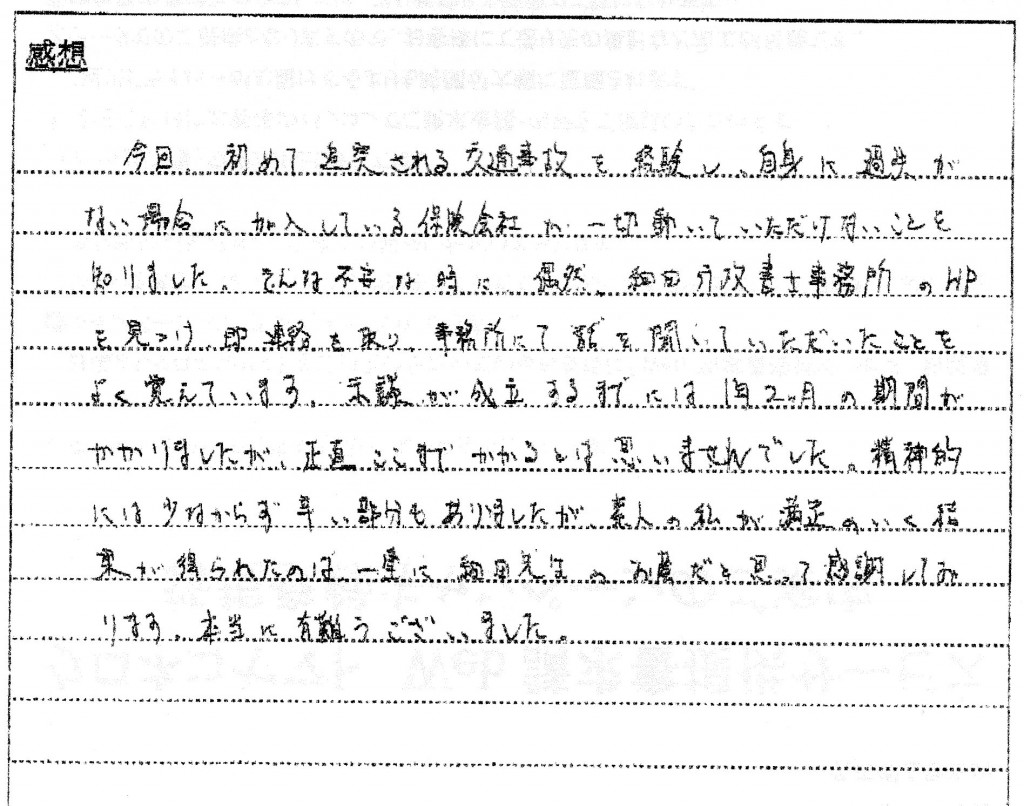 感想
今回、初めて追突される交通事故を経験し、自身に過失が
ない場合に加入している保険会社が一切動いていただけないことを
知りました。そんな不安な時に、偶然、細田行政書士事務所のHP
を見つけ、即連絡を取り、事務所にて話を聞いていただいたことを
よく覚えています。示談が成立するまでには1年2ヶ月の期間が
かかりましたが、正直ここまでかかるとは思いませんでした。精神的
には少なからず辛い部分もありましたが、素人の私が満足のいく結
果が得られたのは、一重に細田先生のお蔭だと思って感謝してお
ります。本当に有難うございました。